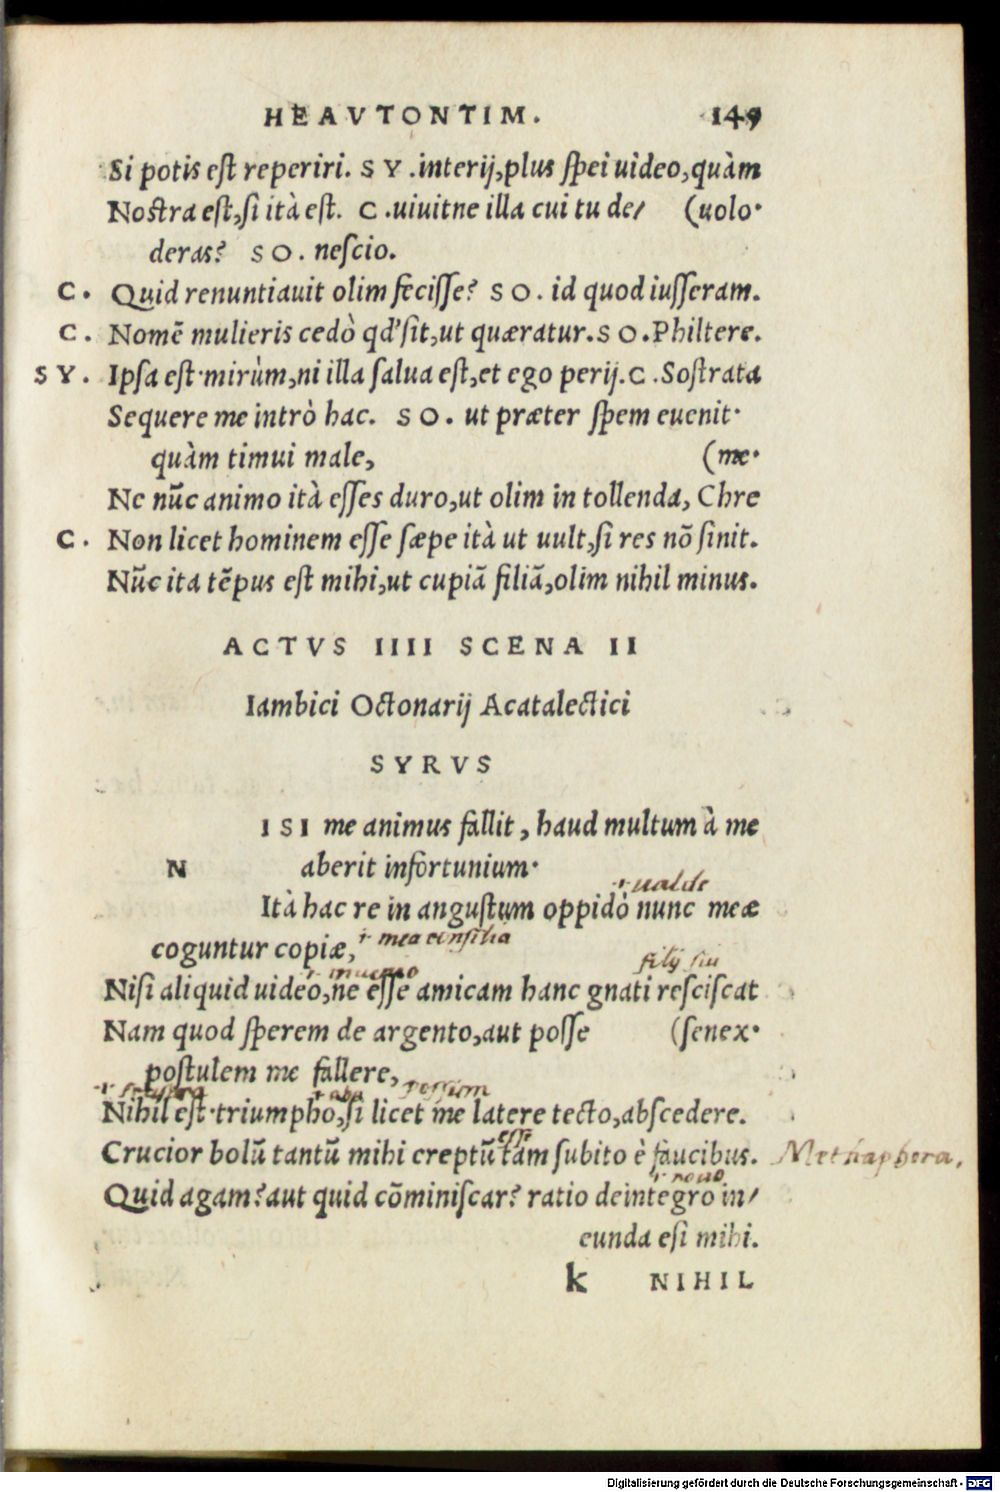 HEAVTONTIM. 149
Si potis est reperiri. SY. interij, plus spei uideo, quàm
Nostra est, si ità est. C. uiuitne illa cui tu de/ (uolo.
deras? SO. nescio.
C. Quid renuntiauit olim fecisse? SO. id quod iusseram.
C. Nomē mulieris cedò qd' sit, ut quæratur. SO. Philtere.
SY. Ipsa est. mirùm, ni illa salua est, et ego perij. C. Sostrata
Sequere me intrò hac. SO. ut præter spem euenit.
quàm timui male, (me.
Ne nūc animo ità esses duro, ut olim in tollenda, Chre
C. Non licet hominem esse sæpe ità ut uult, si res nō sinit.
Nūc ita tēpus est mihi, ut cupiā filiā, olim nihil minus.
ACTVS IIII SCENA II
Iambici Octonarij Acatalectici
SYRVS
ISI me animus fallit, haud multum à me
N aberit infortunium.
ualde
Ità hac re in angustum oppidò nunc meæ
coguntur copiæ, mea consilia
filij sui
Nisi aliquid uideo, ne esse amicam hanc gnati resciscat
Nam quod sperem de argento, aut posse (senex.
postulem me fallere,
possum
Nihil est. triumpho, si licet me latere tecto, abscedere.
esse
Crucior bolū tantū mihi creptū tam subito è faucibus. Methaphora.
nouo
Quid agam? aut quid cōminiscar? ratio deintegro in/
eunda esi mihi.
k NIHIL
Digitalisierung gefördert durch die Deutsche Forschungsgemeinschaft - DFG